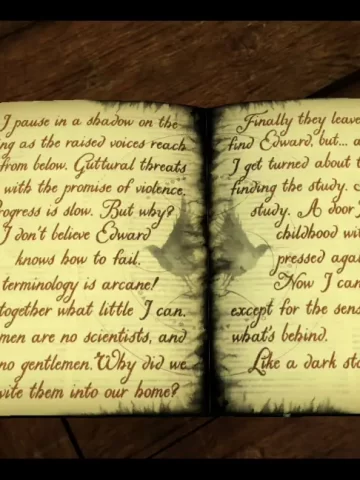 I pause in a shadow on the
ng as the raised voices reach
from below. Guttural threats
with the promise of violence.
rogress is slow. But why?
I don't believe Edward
knows how to fail.
terminology is arcane!
together what little I can.
men are no scientists, and
no gentlemen. Why did we
vite them into our home?
Finally they leave
find Edward, but... a
I get turned about t
finding the study. 
study. A door
childhood wi
pressed aga
Now I can
except for the sens
what's behind.
Like a dark sto